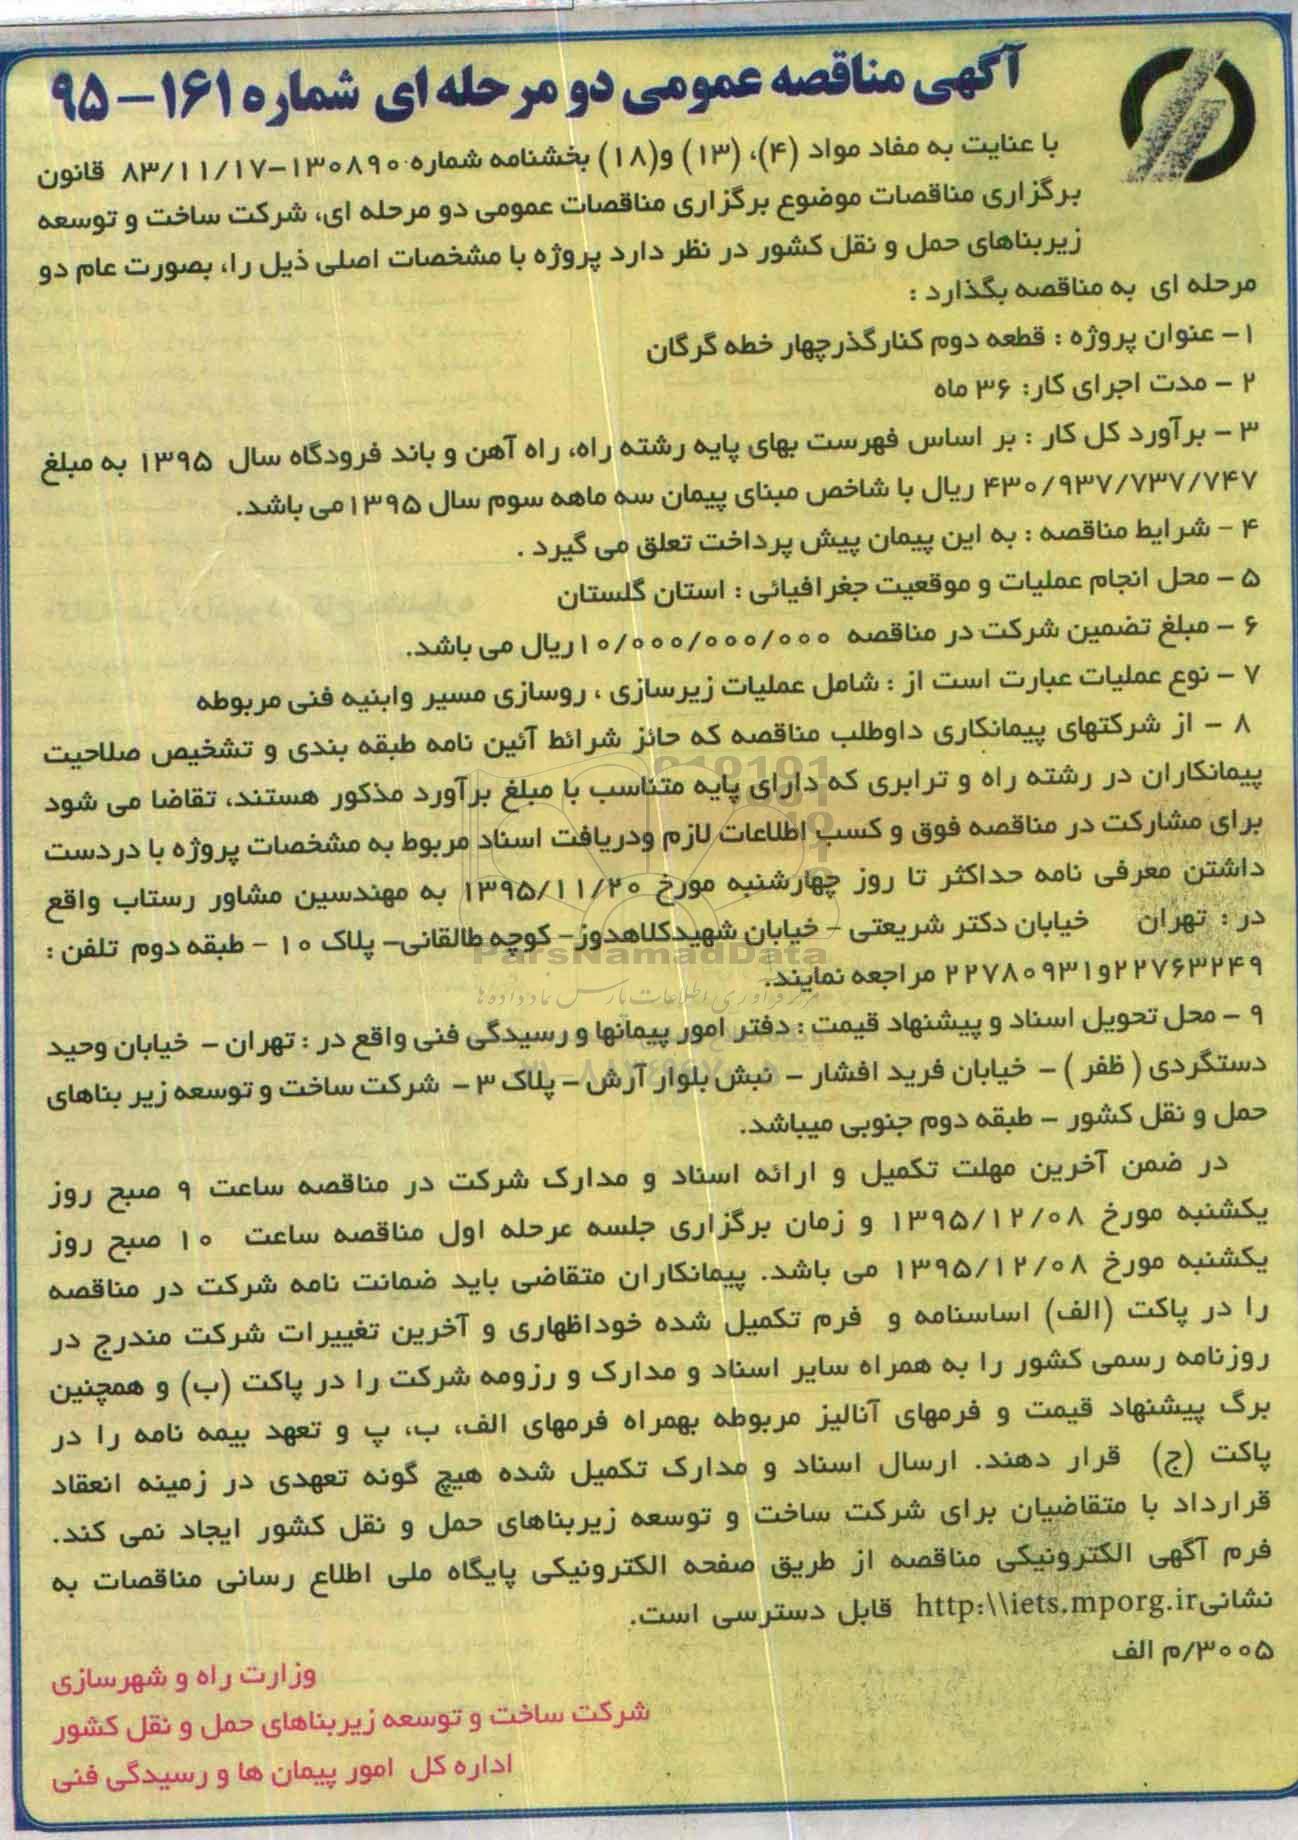 آگهی مناقصه عمومی دو مرحله ای شماره ۱۶۱-۹۵
با عنایت به مفاد مواد (۴)، (۱۳) و(۱۸) بخشنامه شماره ۱۳۰۸۹۰-۸۳/۱۱/۱۷ قانون
برگزاری مناقصات موضوع برگزاری مناقصات عمومی دو مرحله ای، شرکت ساخت و توسعه
زیربناهای حمل و نقل کشور در نظر دارد پروژه با مشخصات اصلی ذیل را، بصورت عام دو
مرحله ای به مناقصه بگذارد :
۱- عنوان پروژه : قطعه دوم کنارگذرچهار خطه گرگان
۲ - مدت اجرای کار: ۳۶ ماه
۳ - برآورد کل کار : بر اساس فهرست بهای پایه رشته راه، راه آهن و باند فرودگاه سال ۱۳۹۵ به مبلغ
۴۳۰/۹۳۷/۷۳۷/۷۴۷ ریال با شاخص مبنای پیمان سه ماهه سوم سال ۱۳۹۵می باشد.
۴ - شرایط مناقصه : به این پیمان پیش پرداخت تعلق می گیرد .
۵ - محل انجام عملیات و موقعیت جغرافیائی : استان گلستان
۶ - مبلغ تضمین شرکت در مناقصه ۱۰/۰۰۰/۰۰۰/۰۰۰ریال می باشد.
۷ - نوع عملیات عبارت است از : شامل عملیات زیرسازی ، روسازی مسیر وابنیه فنی مربوطه
۸ - از شرکتهای پیمانکاری داوطلب مناقصه که حائز شرائط آئین نامه طبقه بندی و تشخیص صلاحیت
پیمانکاران در رشته راه و ترابری که دارای پایه متناسب با مبلغ برآورد مذکور هستند، تقاضا می شود
برای مشارکت در مناقصه فوق و کسب اطلاعات لازم ودریافت اسناد مربوط به مشخصات پروژه با دردست
داشتن معرفی نامه حداکثر تا روز چهارشنبه مورخ ۱۳۹۵/۱۱/۲۰ به مهندسین مشاور رستاب واقع
در : تهران خیابان دکتر شریعتی - خیابان شهیدکلاهدوز- کوچه طالقانی- پلاک ۱۰ - طبقه دوم تلفن :
۲۲۷۶۳۲۴۹و۲۲۷۸۰۹۳۱ مراجعه نمایند.
ParsNamadData
۹ - محل تحویل اسناد و پیشنهاد قیمت : دفتر امور پیمانها و رسیدگی فنی واقع در : تهران - خیابان وحید
دستگردی ( ظفر ) - خیابان فرید افشار - نبش بلوار آرش - پلاک ۳ - شرکت ساخت و توسعه زیر بناهای
حمل و نقل کشور - طبقه دوم جنوبی میباشد.
در ضمن آخرین مهلت تکمیل و ارائه اسناد و مدارک شرکت در مناقصه ساعت ۹ صبح روز
یکشنبه مورخ ۱۳۹۵/۱۲/۰۸ و زمان برگزاری جلسه عرحله اول مناقصه ساعت ۱۰ صبح روز
یکشنبه مورخ ۱۳۹۵/۱۲/۰۸ می باشد. پیمانکاران متقاضی باید ضمانت نامه شرکت در مناقصه
را در پاکت (الف) اساسنامه و فرم تکمیل شده خوداظهاری و آخرین تغییرات شرکت مندرج در
روزنامه رسمی کشور را به همراه سایر اسناد و مدارک و رزومه شرکت را در پاکت (ب) و همچنین
برگ پیشنهاد قیمت و فرمهای آنالیز مربوطه بهمراه فرمهای الف، ب، پ و تعهد بیمه نامه را در
پاکت (ج) قرار دهند. ارسال اسناد و مدارک تکمیل شده هیچ گونه تعهدی در زمینه انعقاد
قرارداد با متقاضیان برای شرکت ساخت و توسعه زیربناهای حمل و نقل کشور ایجاد نمی کند.
فرم آگهی الکترونیکی مناقصه از طریق صفحه الکترونیکی پایگاه ملی اطلاع رسانی مناقصات به
نشانیhttp:\\iets.mporg.ir قابل دسترسی است.
۳۰۰۵/م الف
وزارت راه و شهرسازی
شرکت ساخت و توسعه زیربناهای حمل و نقل کشور
اداره کل امور پیمان ها و رسیدگی فنی